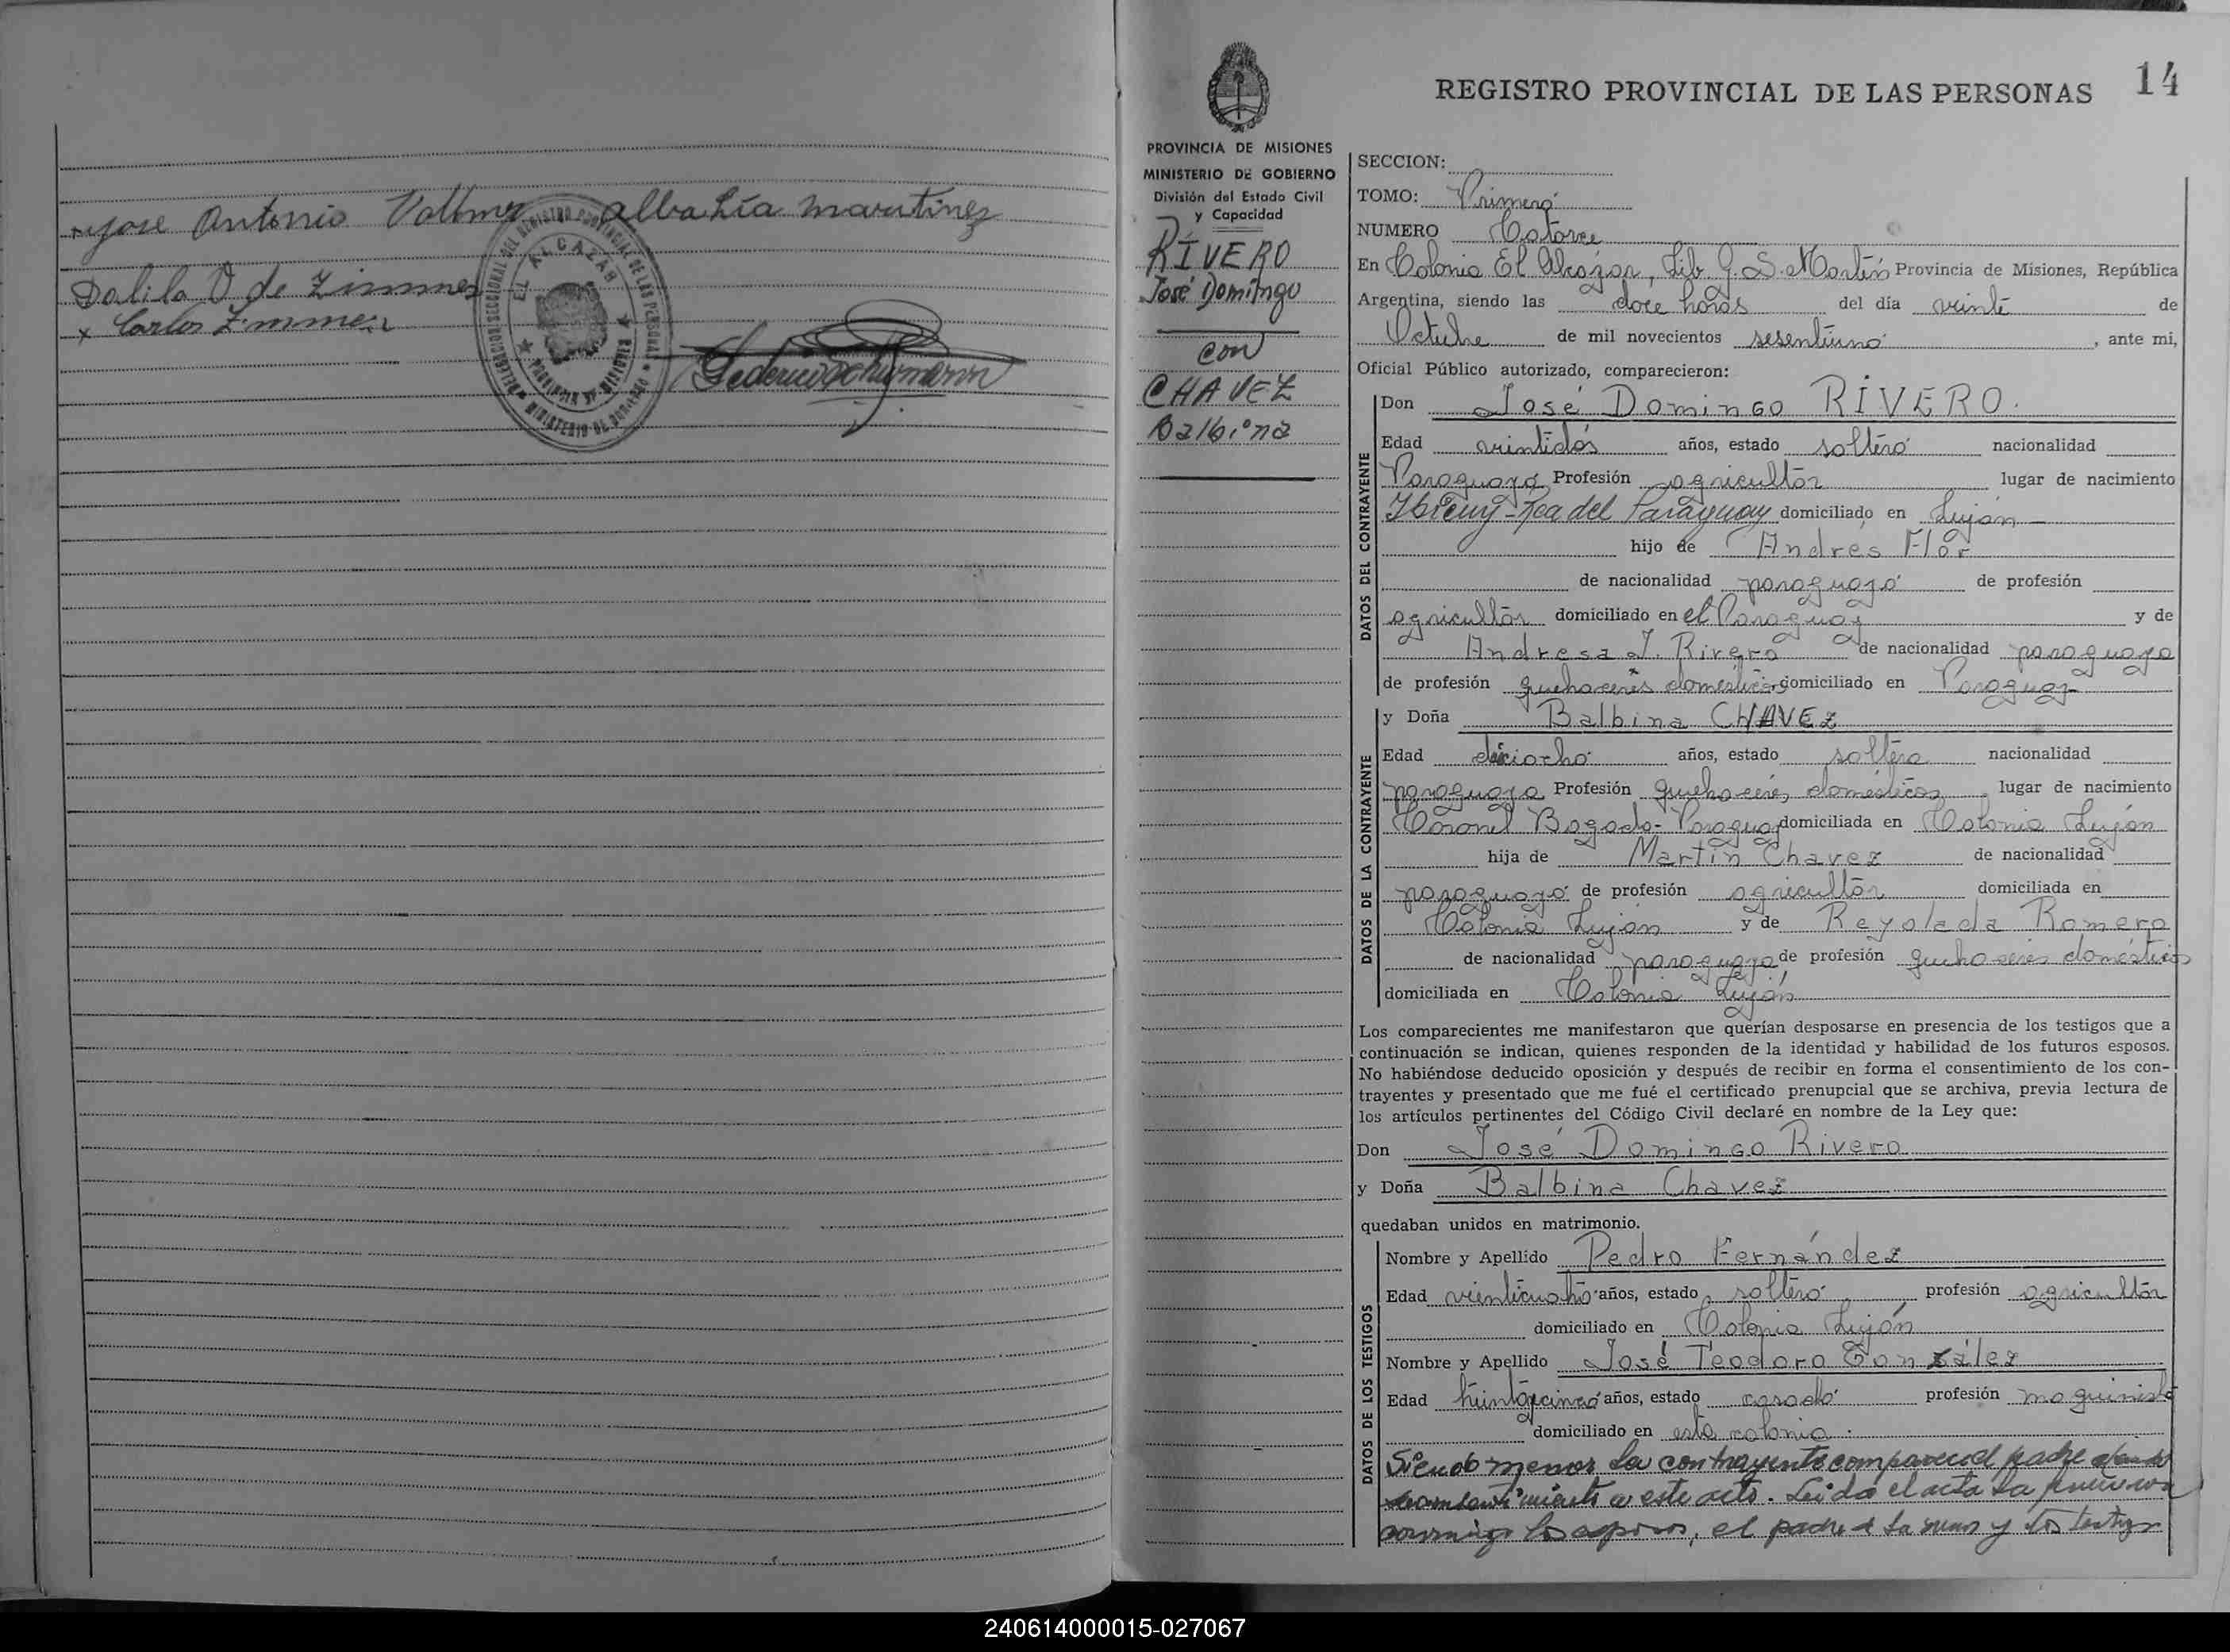 Jose Antonio Vollmer Alba Lía Martinez
Dalila O de Zimmer
x Carlos Zimmer
EL ALCAZAR
14
REGISTRO PROVINCIAL DE LAS PERSONAS
PROVINCIA DE MISIONES
MINISTERIO DE GOBIERNO
División del Estado Civil
y Capacidad
RIVERO
José Domingo
con
CHAVEZ
Balbina
SECCION:
TOMO: Primero
NUMERO Catorce
En Colonia El Alcazar, Lib. G. S. Martín Provincia de Misiones, República
Argentina, siendo las doce horas del día veinte de
Octubre de mil novecientos sesentiuno, ante mi,
Oficial Público autorizado, comparecieron:
DATOS DEL CONTRAYENTE
Don José Domingo RIVERO.
Edad veintidós años, estado soltero nacionalidad
Paraguayo Profesión agricultor lugar de nacimiento
Ibicuy-Rca del Paraguay domiciliado en Luján
hijo de Andrés Flor
de nacionalidad paraguayo de profesión
agricultor domiciliado en el Paraguay y de
Andresa J. Rivero de nacionalidad paraguaya
de profesión quehaceres domésticos domiciliado en Paraguay
DATOS DE LA CONTRAYENTE
y Doña Balbina CHAVEZ
Edad dieciocho años, estado soltera nacionalidad
paraguaya Profesión quehaceres domésticos lugar de nacimiento
Coronel Bogado-Paraguay domiciliada en Colonia Luján
hija de Martín Chavez de nacionalidad
paraguayo de profesión agricultor domiciliada en
Colonia Luján y de Reyolada Romero
de nacionalidad paraguaya de profesión quehaceres domésticos
domiciliada en Colonia Luján
Los comparecientes me manifestaron que querían desposarse en presencia de los testigos que a
continuación se indican, quienes responden de la identidad y habilidad de los futuros esposos.
No habiéndose deducido oposición y después de recibir en forma el consentimiento de los con-
trayentes y presentado que me fué el certificado prenupcial que se archiva, previa lectura de
los artículos pertinentes del Código Civil declaré en nombre de la Ley que:
Don José Domingo Rivero
y Doña Balbina Chavez
quedaban unidos en matrimonio.
DATOS DE LOS TESTIGOS
Nombre y Apellido Pedro Fernández
Edad vienticuatro años, estado soltero profesión agricultor
domiciliado en Colonia Luján
Nombre y Apellido José Teodoro González
Edad treintaycinco años, estado casado profesión maquinista
domiciliado en esta colonia.
Siendo menor la contrayente comparece el padre dando
consentimiento a este acto. Leida el acta la firmaron
conmigo los esposos, el padre de la menor y los testigos
240614000015-027067